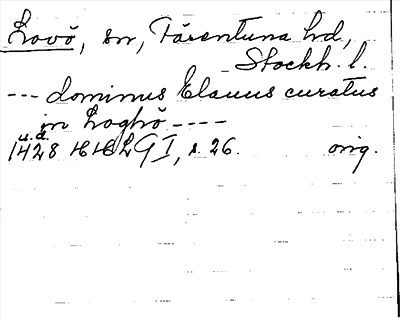 Lovö, sn, Färentuna hd,
Stockh. l.
--- dominus Elauus curatus
in Loghö ----
u.d.
1428 HHLG I, s. 26. orig.